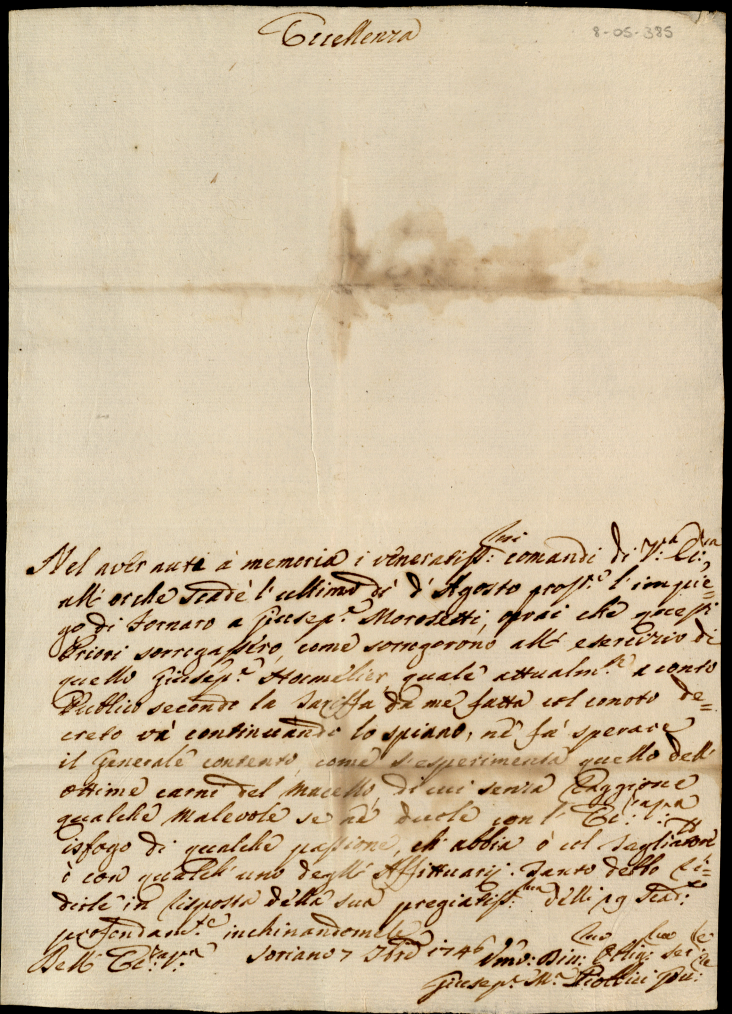 Eccellenza
8-05-385
Nel aver aute à memoria i veneratiss:mi suoi comandi di V:ra Ecc:za
all' or che scadè l'ultimo dì d'Agosto pros:o l'impie=
go di Fornaro a Giusep:e Morosetti, oprai che questi
Priori sorregassero, come sorregorono all' esercizio di
quello Giusep:e quale attualm:te a conto
Publico secondo la Tariffa da me fatta col consto de=
creto và continuando lo spiano, nè fà sperare
il Generale contento, come s'esperimenta quello dell'
ottime carni del Macello, di cui senza Raggione
qualche Malevole se nè duole con l' Ecc:
isfogo di qualche passione, ch' abbia ò col Tagliatore
ò con qualch' uno degl' Affittuarij. Tanto debbo
dirle in risposta della sua pregiatiss:ma delli pg Scad:to
profondam:te inchinandomele
Dell' Ecc: Soriano 7 7bre 1746
Umo: Diu: Oblig: ser:
Giusep:e M:a